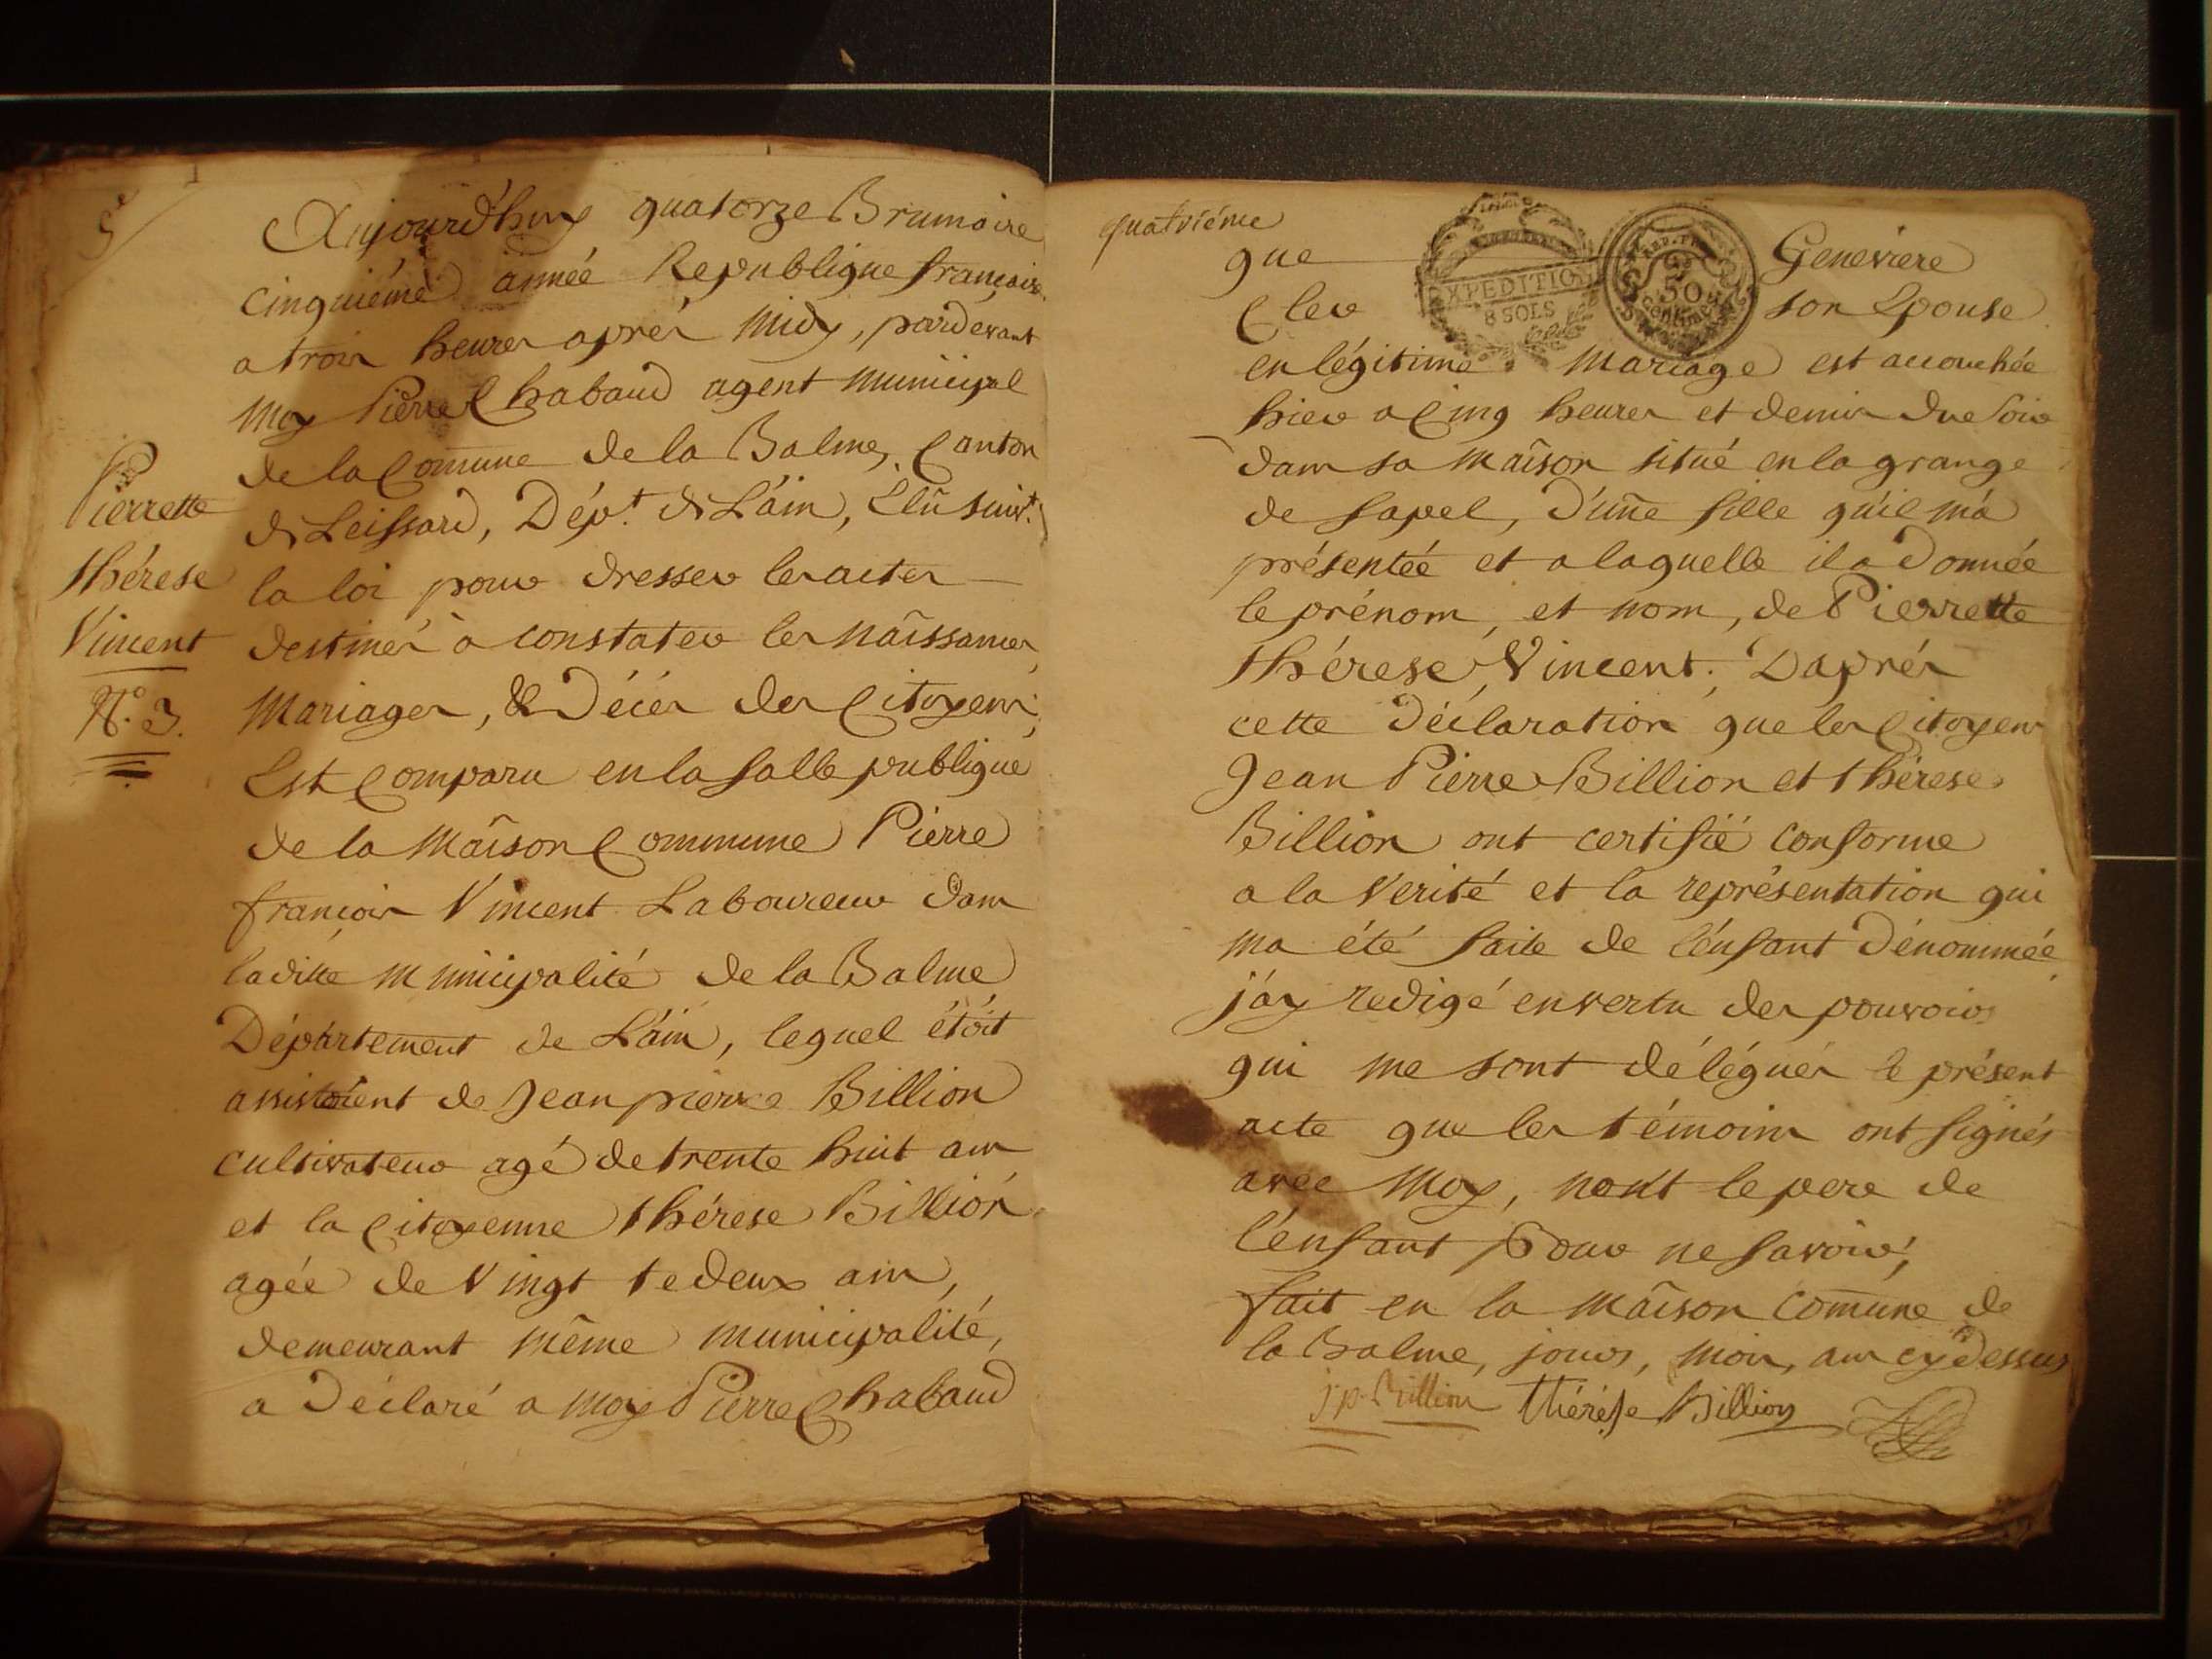 5e
Aujourd'huy quatorze Brumaire
cinquiéme année Republique françoise
a trois heures aprés Midy, pardevant
Moy Pierre Chabaud agent Municipal
de la Comune de la Balme, Canton
de Leissard, Dépt. de L'áin, Elû suivt.
la loi pour dresser les actes
destinés à constater les Naîssances,
Mariages, & Décés des Citoyens,
Est Comparu en la salle publique
de la Maîson Commune Pierre
françois Vincent Laboureur dans
laditte Municipalité de la Balme
Département de L'áin, lequel étóit
assistoient de Jean pierre Billion
cultivateur agé de trente huit ans
et la Citoyenne thérese Billion
agée de Vingt te deux ans,
demeurant même municipalité,
a Déclaré a moy Pierre Chabaud
Pierrette
thérese
Vincent
N°. 3.
quatriéme
que Genevieve
Cler son Epouse
EXPEDITION
8 SOLS
REP. FRA.
50
Centimes
en légitime Mariage est accouchée
hier a Cinq heures et demis due soir
dans sa Maîson situé en la grange
de sapel, d'une fille qu'il m'a
présentée et a laquelle il a Donnée
le prénom, et nom, de Pierrette
thérese, Vincent. D'aprés
cette Déclaration que les Citoyens
Jean Pierre Billion et thérese
Billion ont certifié conforme
a la Verité et la représentation qui
ma été faite de l'énfant Dénommée
j'áy redigé en vertu des pouvoirs
qui me sont délégués le présent
acte que les témoins ont signés
avec Moy, nont le pere de
l'énfant pour ne savoir,
fait en la Maîson Comune de
la Balme, jours, mois, an cy dessus
j p. Billion thérése Billion